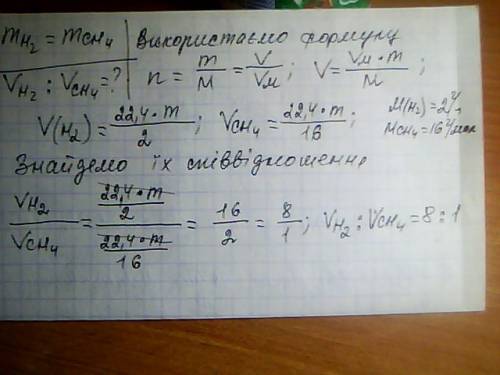 mH₂ = mCH₄
VH₂ : VCH₄ = ?
Використаємо формулу
n = m/M = V/Vм; V = Vм·m/M;
V(H₂) = 22,4·m/2; VCH₄ = 22,4·m/16;
M(H₂) = 2 г/
MCH₄ = 16 г/моль
Знайдемо їх співвідношення
VH₂/VCH₄ = (22,4·m/2)/(22,4·m/16) = 16/2 = 8/1; VH₂ : VCH₄ = 8 : 1